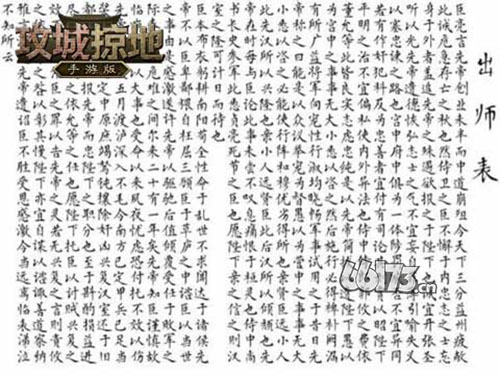 出师表
臣亮言先帝创业未半而中道崩殂今天下三分益州疲敝
此诚危急存亡之秋也然侍卫之臣不懈于内忠志之士忘
身于外者盖追先帝之殊遇欲报之于陛下也诚宜开张圣
听以光先帝遗德恢弘志士之气不宜妄自菲薄引喻失义
以塞忠谏之路也宫中府中俱为一体陟罚臧否不宜异同
若有作奸犯科及为忠善者宜付有司论其刑赏以昭陛下
平明之治不宜偏私使内外异法也侍中侍郎郭攸之费祎
董允等此皆良实志虑忠纯是以先帝简拔以遗陛下愚以
为宫中之事事无大小悉以咨之然后施行必得裨补阙漏
有所广益将军向宠性行淑均晓畅军事试用之于昔日先
帝称之曰能是以众议举宠为督愚以为营中之事事无大
小悉以咨之必能使行阵和穆优劣得所也亲贤臣远小人
此先汉所以兴隆也亲小人远贤臣此后汉所以倾颓也先
帝在时每与臣论此事未尝不叹息痛恨于桓灵也侍中尚
书长史参军此悉贞亮死节之臣也愿陛下亲之信之则汉
室之隆可计日而待也
臣本布衣躬耕南阳苟全性命于乱世不求闻达于诸侯先
帝不以臣卑鄙猥自枉屈三顾臣于草庐之中谘臣以当世
之事由是感激遂许先帝以驱驰后值倾覆受任于败军之
际奉命于危难之间尔来二十有一年矣先帝知臣谨慎故
临崩寄臣以大事也受命以来夙夜忧虑恐付托不效以伤
先帝之明故五月渡泸深入不毛今南方已定甲兵已足当
奖帅三军北定中原庶竭驽钝攘除奸凶兴复汉室还于旧
都此臣所以报先帝而忠陛下之职分也至于斟酌损益进
尽忠言则攸之依允等之任也愿陛下托臣以讨贼兴复之
效不效则治臣之罪以告先帝之灵若无兴德之言则责攸
之依允等之咎以彰其慢陛下亦宜自谋以谘诹善道察纳
雅言深追先帝遗诏臣不胜受恩感激今当远离临表涕泣
不知所云
攻城掠地
手游版
66173.cn